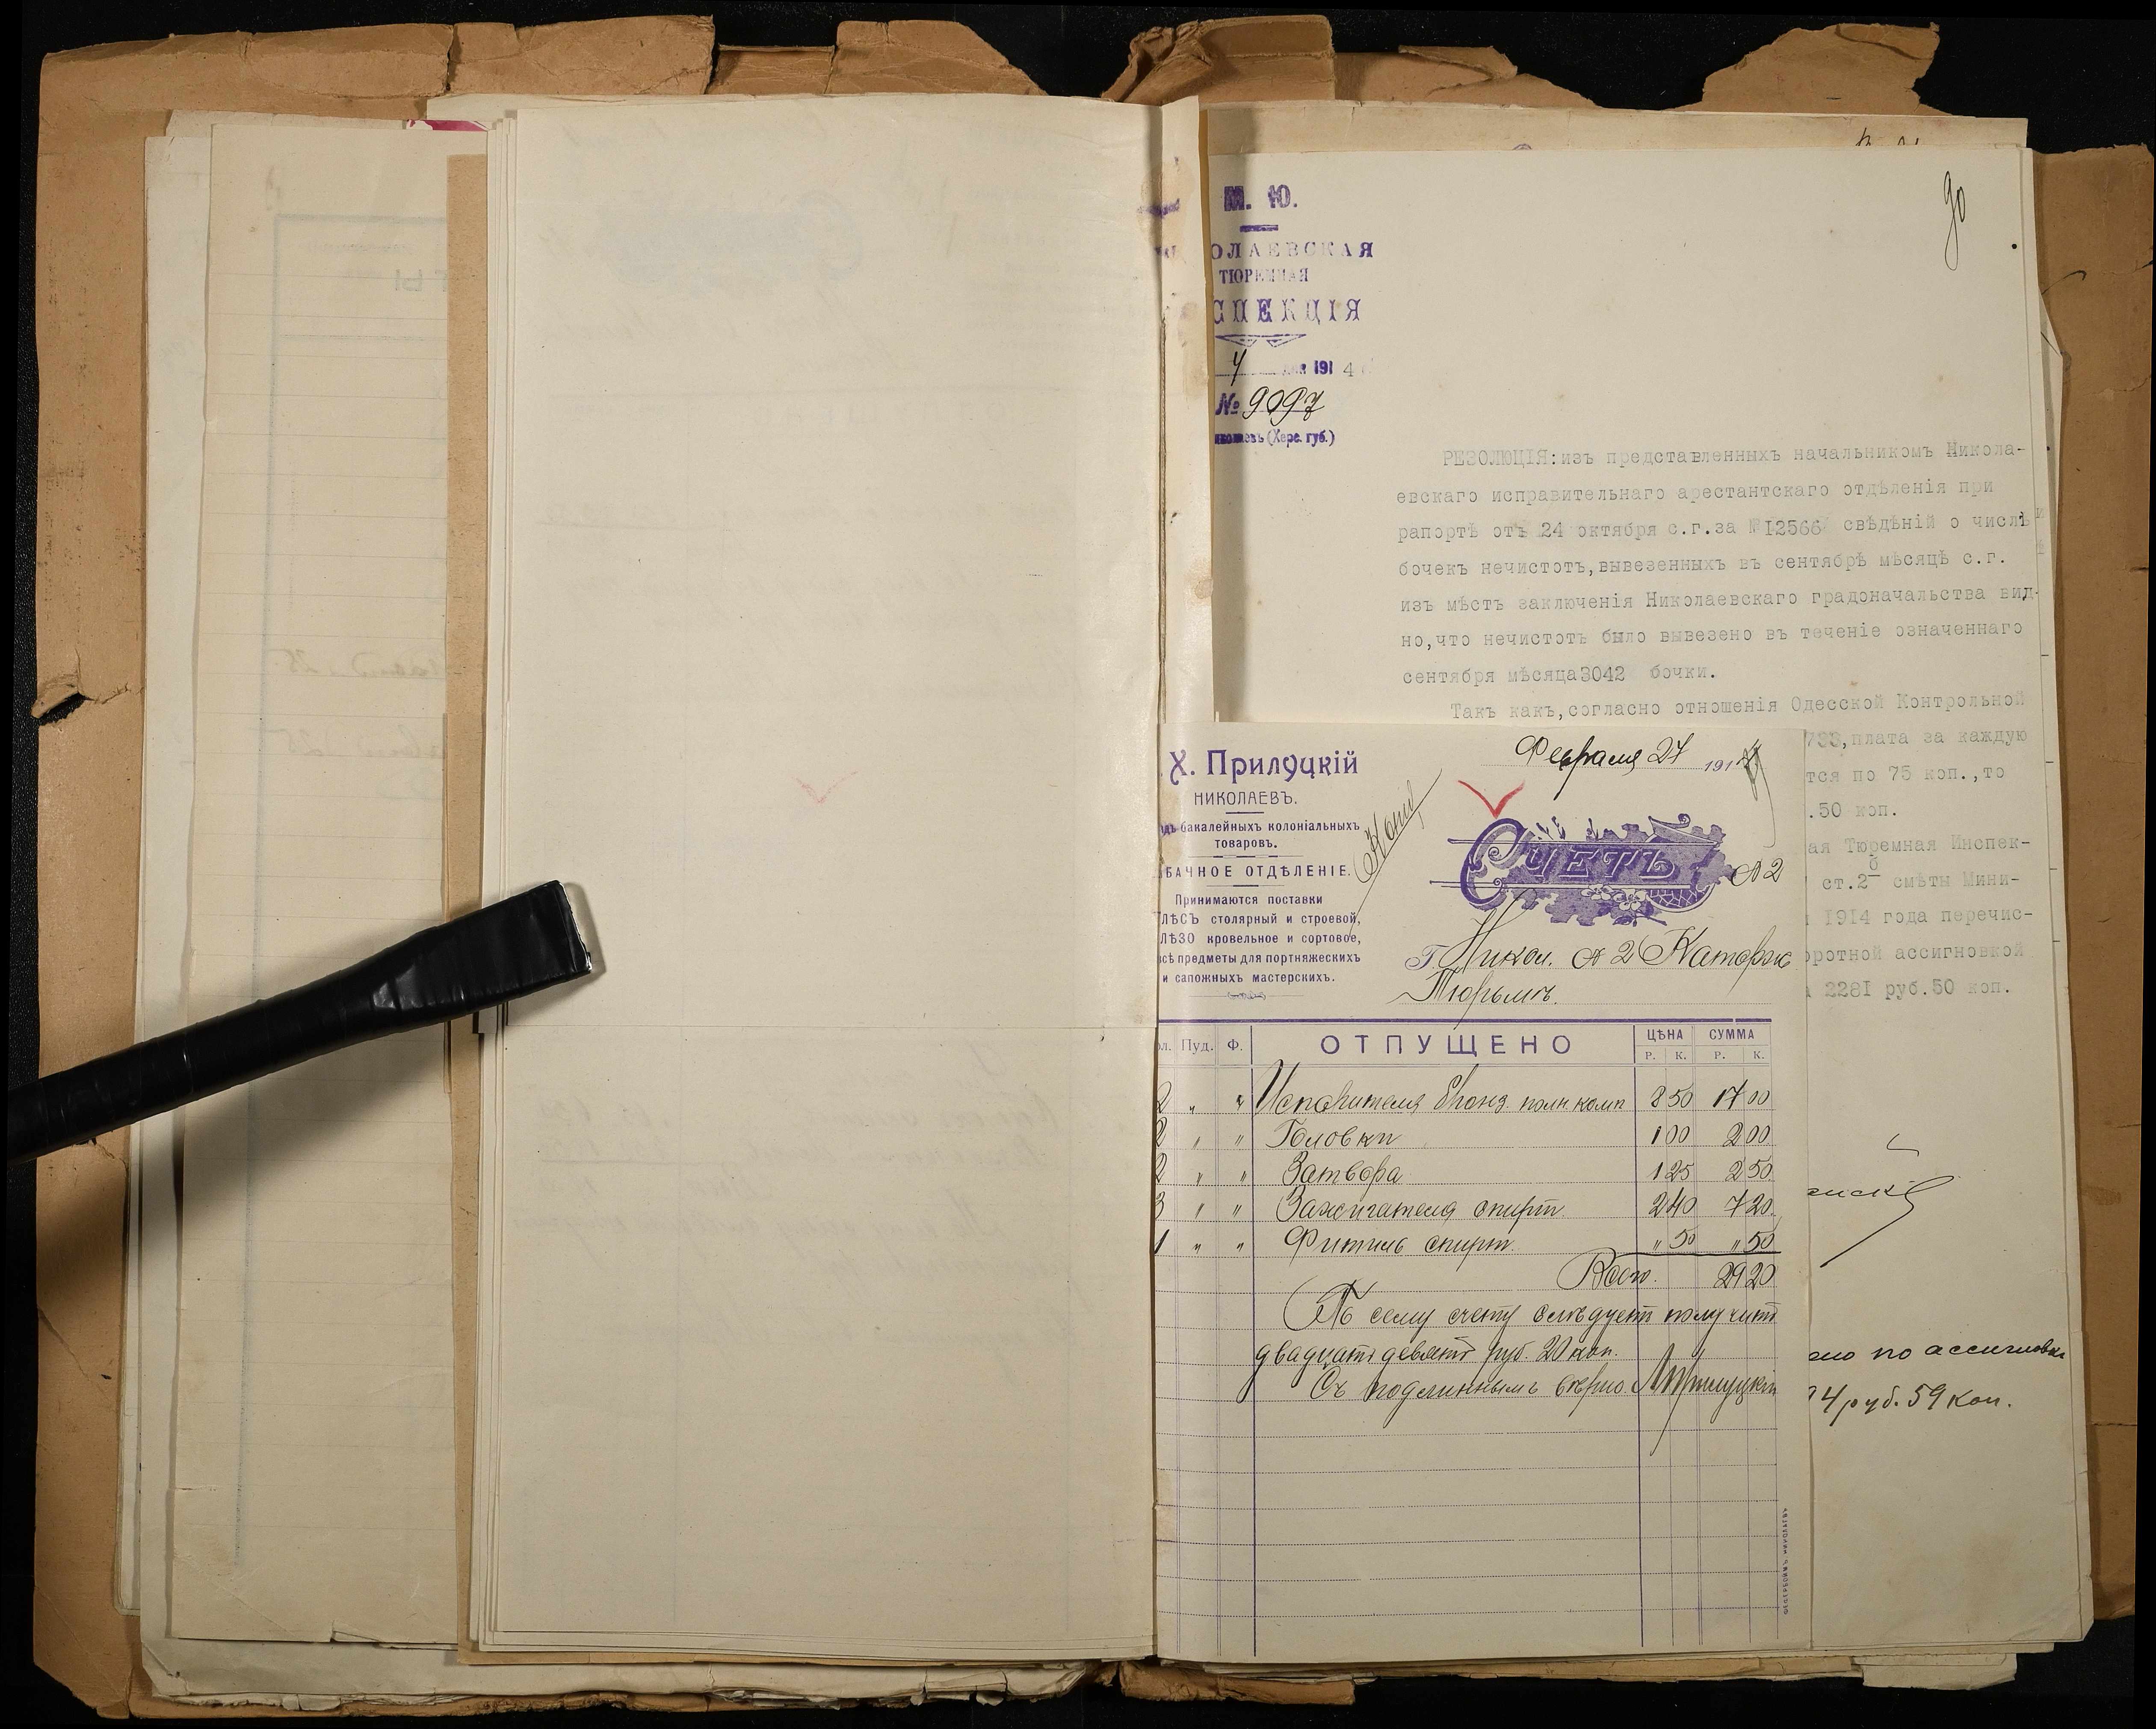 90
М. Ю.
ОЛАЕВСКАЯ
ТЮРЕМНАЯ
СПЕКЦІЯ
4 191 4
№ 9097
(Херс. губ.)
РЕЗОЛЮЦІЯ: изъ представленныхъ начальникомъ Никола-
евскаго исправительнаго арестантскаго отдѣленія при
рапортѣ отъ 24 октября с.г.за №12566 свѣдѣній о числѣ
бочекъ нечистотъ,вывезенныхъ въ сентябрѣ мѣсяцѣ с.г.
изъ мѣстъ заключенія Николаевскаго градоначальства вид-
но,что нечистотъ было вывезено въ теченіе означеннаго
сентября мѣсяца 3042 бочки.
Такъ какъ,согласно отношенія Одесской Контрольной
733,плата за каждую
тся по 75 коп.,то
.50 коп.
ая Тюремная Инспек-
ст.2 б смѣты Мини-
1914 года перечис-
оротной ассигновкой
2281 руб.50 коп.
по ассигновкѣ
4 руб. 59 коп.
Х. Прилуцкій
НИКОЛАЕВЪ.
бакалейныхъ колоніальныхъ
товаровъ.
БАЧНОЕ ОТДѢЛЕНІЕ.
Принимаются поставки
ЛѢСЪ столярный и строевой,
ЛѢЗО кровельное и сортовое,
всѣ предметы для портняжескихъ
и сапожныхъ мастерскихъ.
Копія
Февраля 27 191
СЧЕТЪ
№ 2
Г. Никол. № 2 Каторж
Тюрьмѣ.
Пуд. Ф. ОТПУЩЕНО ЦѢНА СУММА
Р. К. Р. К.
2 " " Испарителя бронз. полн. комп 8 50 17 00
2 " " Головки 1 00 2 00
2 " " Затвора 1 25 2 50
3 " " Зажигателя спирт. 2 40 7 20
1 " " Фитиль спирт. " 50 " 50
Всего. 29 20
По сему счету слѣдуетъ получить
двадцать девять руб. 20 коп.
Съ подлиннымъ вѣрно. Прилуцкій
ФЕДЕРБОЙМЪ. НИКОЛАЕВЪ